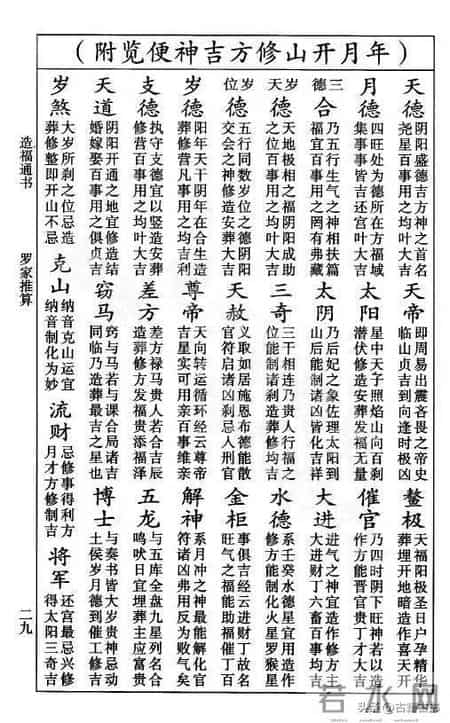 （年月开山修方吉神便览附）
天德
阴阳盛德吉方神之首名
尧星百事用之均叶大吉
天帝
即周易出震吝畏之帝史
临山贞吉到向逢时极凶
鳌极
天福阳极圣日户孕精华
葬埋开地暗造作喜天开
月德
四旺处为德所在方福域
集事事皆吉还宫叶大吉
太阳
星中天子照焰山向百刹
潜伏修造安葬发福无量
催官
乃四时阴下旺神若以造
作方能晋官贵丁才大吉
三德合
乃五行生气之神相扶篇
福宜百事用之罔有弗臧
太阴
乃后妃之象佐理太阳到
山后能制诸凶皆化吉祥
大进
进气之神宜造作修方主
大进财丁六畜百事均吉
岁天德
天地极相之福阴阳成助
之位百事用之均叶大吉
三奇
三干相连乃贵人行福之
下能制诸刹造葬修均吉
水德
系壬癸水德星宜用造作
修方能制化火星罗猴星
岁位德
五行同数岁位之德阴阳
交会之神修造安葬大吉
天赦
义取如居施恩布德能散
官符启诸凶刹忌人刑官
金柜
事俱吉经云进财丁故名
旺气之福能助福催丁百
岁德
阳年天干阴年在合生造
葬修营凡事用之均吉利
尊帝
天向转运循环经云尊帝
吉星实可用亲百事维亲
解神
系月冲之神最能解化官
符诸凶弗用反为败气矣
支德
执守支德宜以竖造安葬
修营百事用之均叶大吉
差方
差方禄马贵人若合吉辰
造葬修方发福贵添福泽
五龙
与五库全盘九星列名合
鸣吠日宜埋葬主应富贵
天道
阴阳开通之地宜修造结
婚嫁娶百事用之俱贞吉
窃马
窍与马若与课合局诸吉
同临乃造葬最吉之星也
博士
与奏书皆大岁贵神忌动
土侯岁月德到催工修吉
岁煞
大岁所刹之位忌造
葬修整即开山不忌
克山
纳音克山运宜
纳音制化为妙
流财
忌修事得利方
月才方修制吉
将军
还宫最忌兴修
得太阳三奇吉
造福通书
罗家推算
二九
若水网
头条@古籍古书